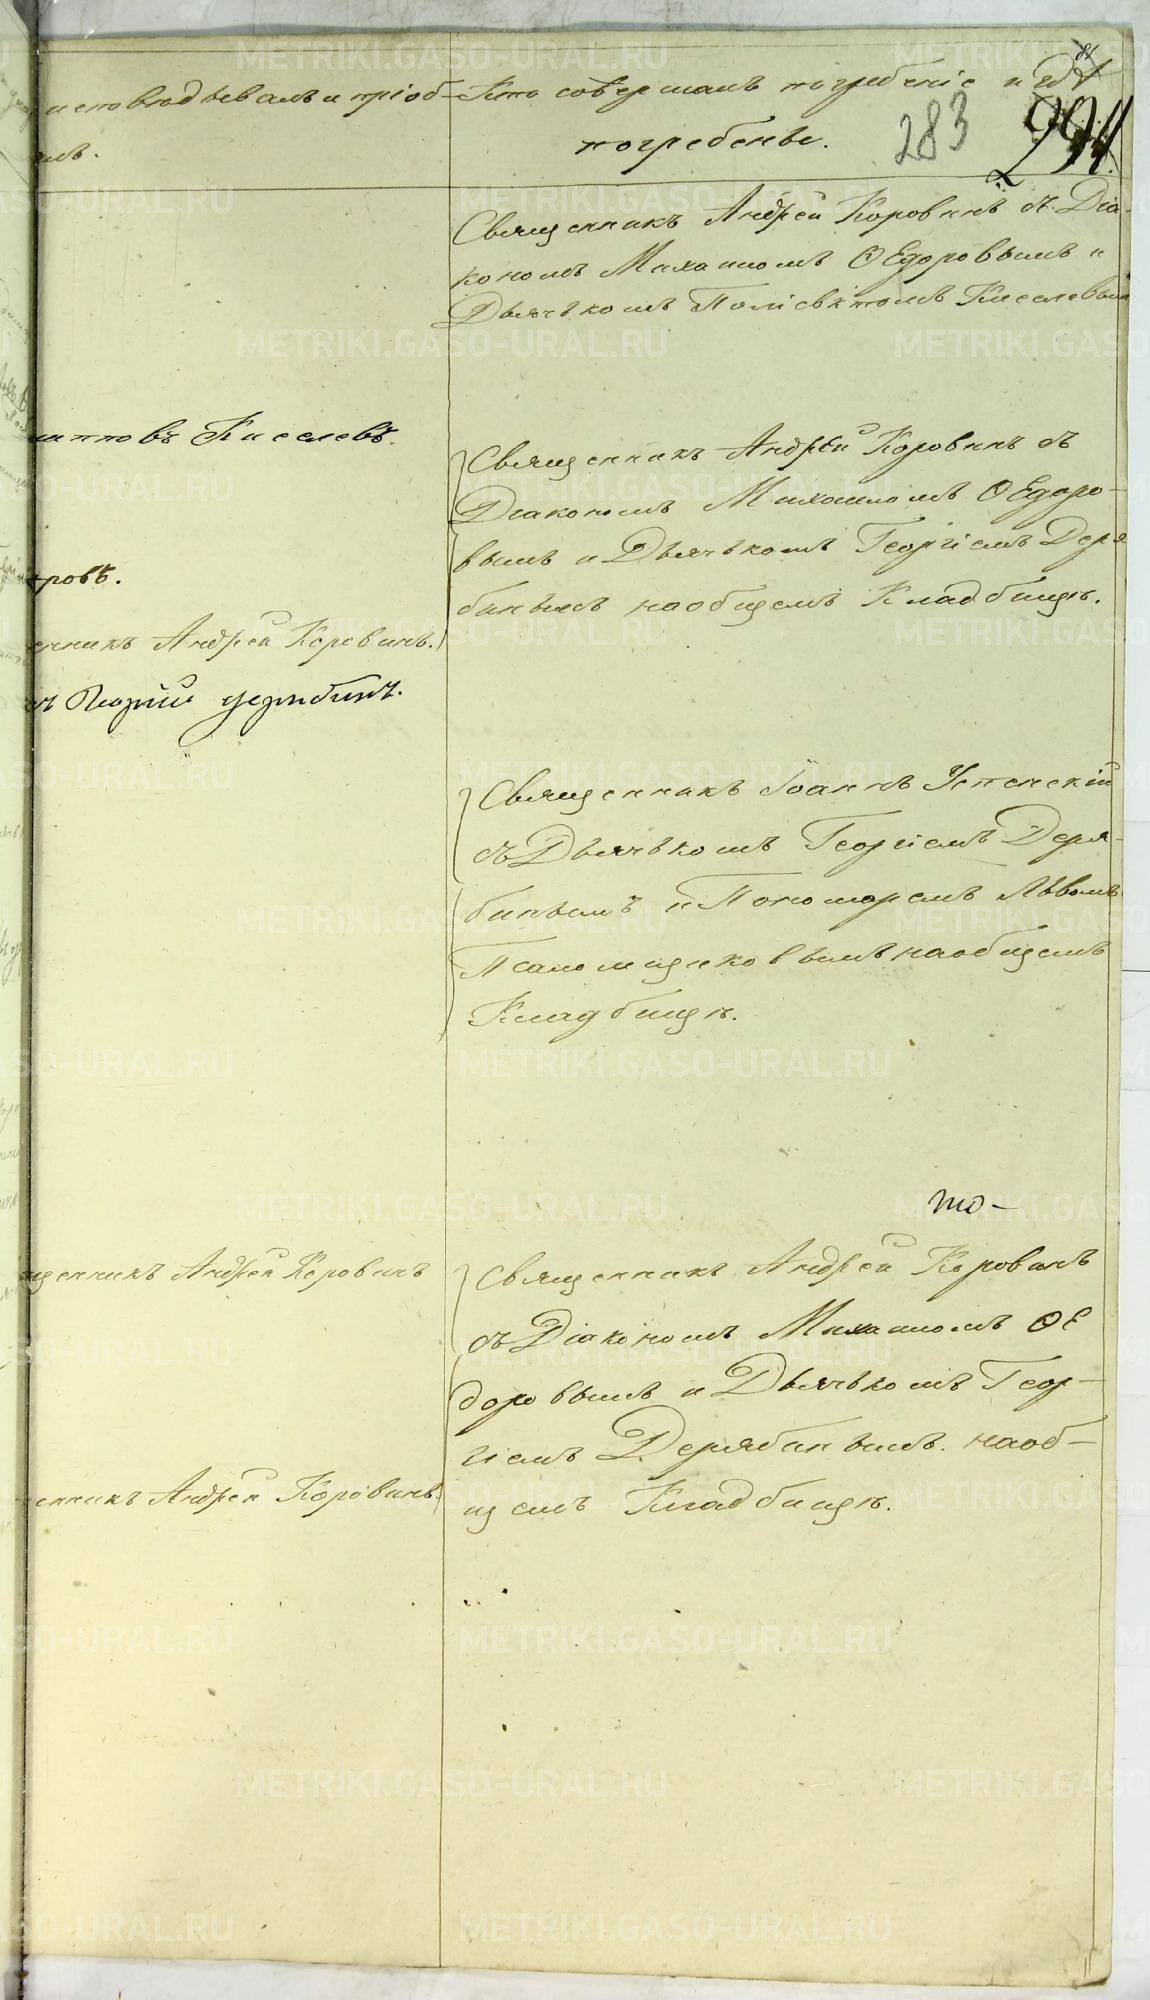 исповѣдывалъ и пріоб-
илъ.
Кто совершалъ погребеніе и гдѣ
погребены.
283
294.
Священникъ Андрей Коровинъ съ Діа-
кономъ Михаиломъ Ѳедоровымъ и
Дьячькомъ Поліевктомъ Киселевымъ
Киселевъ.
Священникъ Андрей Коровинъ съ
Діакономъ Михаиломъ Ѳедоро-
вымъ и Дьячькомъ Георгіемъ Деря
бинымъ наобщемъ Кладбищѣ.
ровъ.
енникъ Андрей Коровинъ.
ъ Георгій Дерябинъ.
Священникъ Іоаннъ Успенскій
съ Дьячькомъ Георгіемъ Деря-
бинымъ и Пономаремъ Львомъ
Псаломщиковымъ наобщемъ
Кладбищѣ.
то-
щенникъ Андрей Коровинъ
Священникъ Андрей Коровинъ
съ Діакономъ Михаиломъ Ѳе
доровымъ и Дьячькомъ Геор-
гіемъ Дерябинымъ. наоб-
щемъ Кладбищѣ.
енникъ Андрей Коровинъ.
METRIKI.GASO-URAL.RU